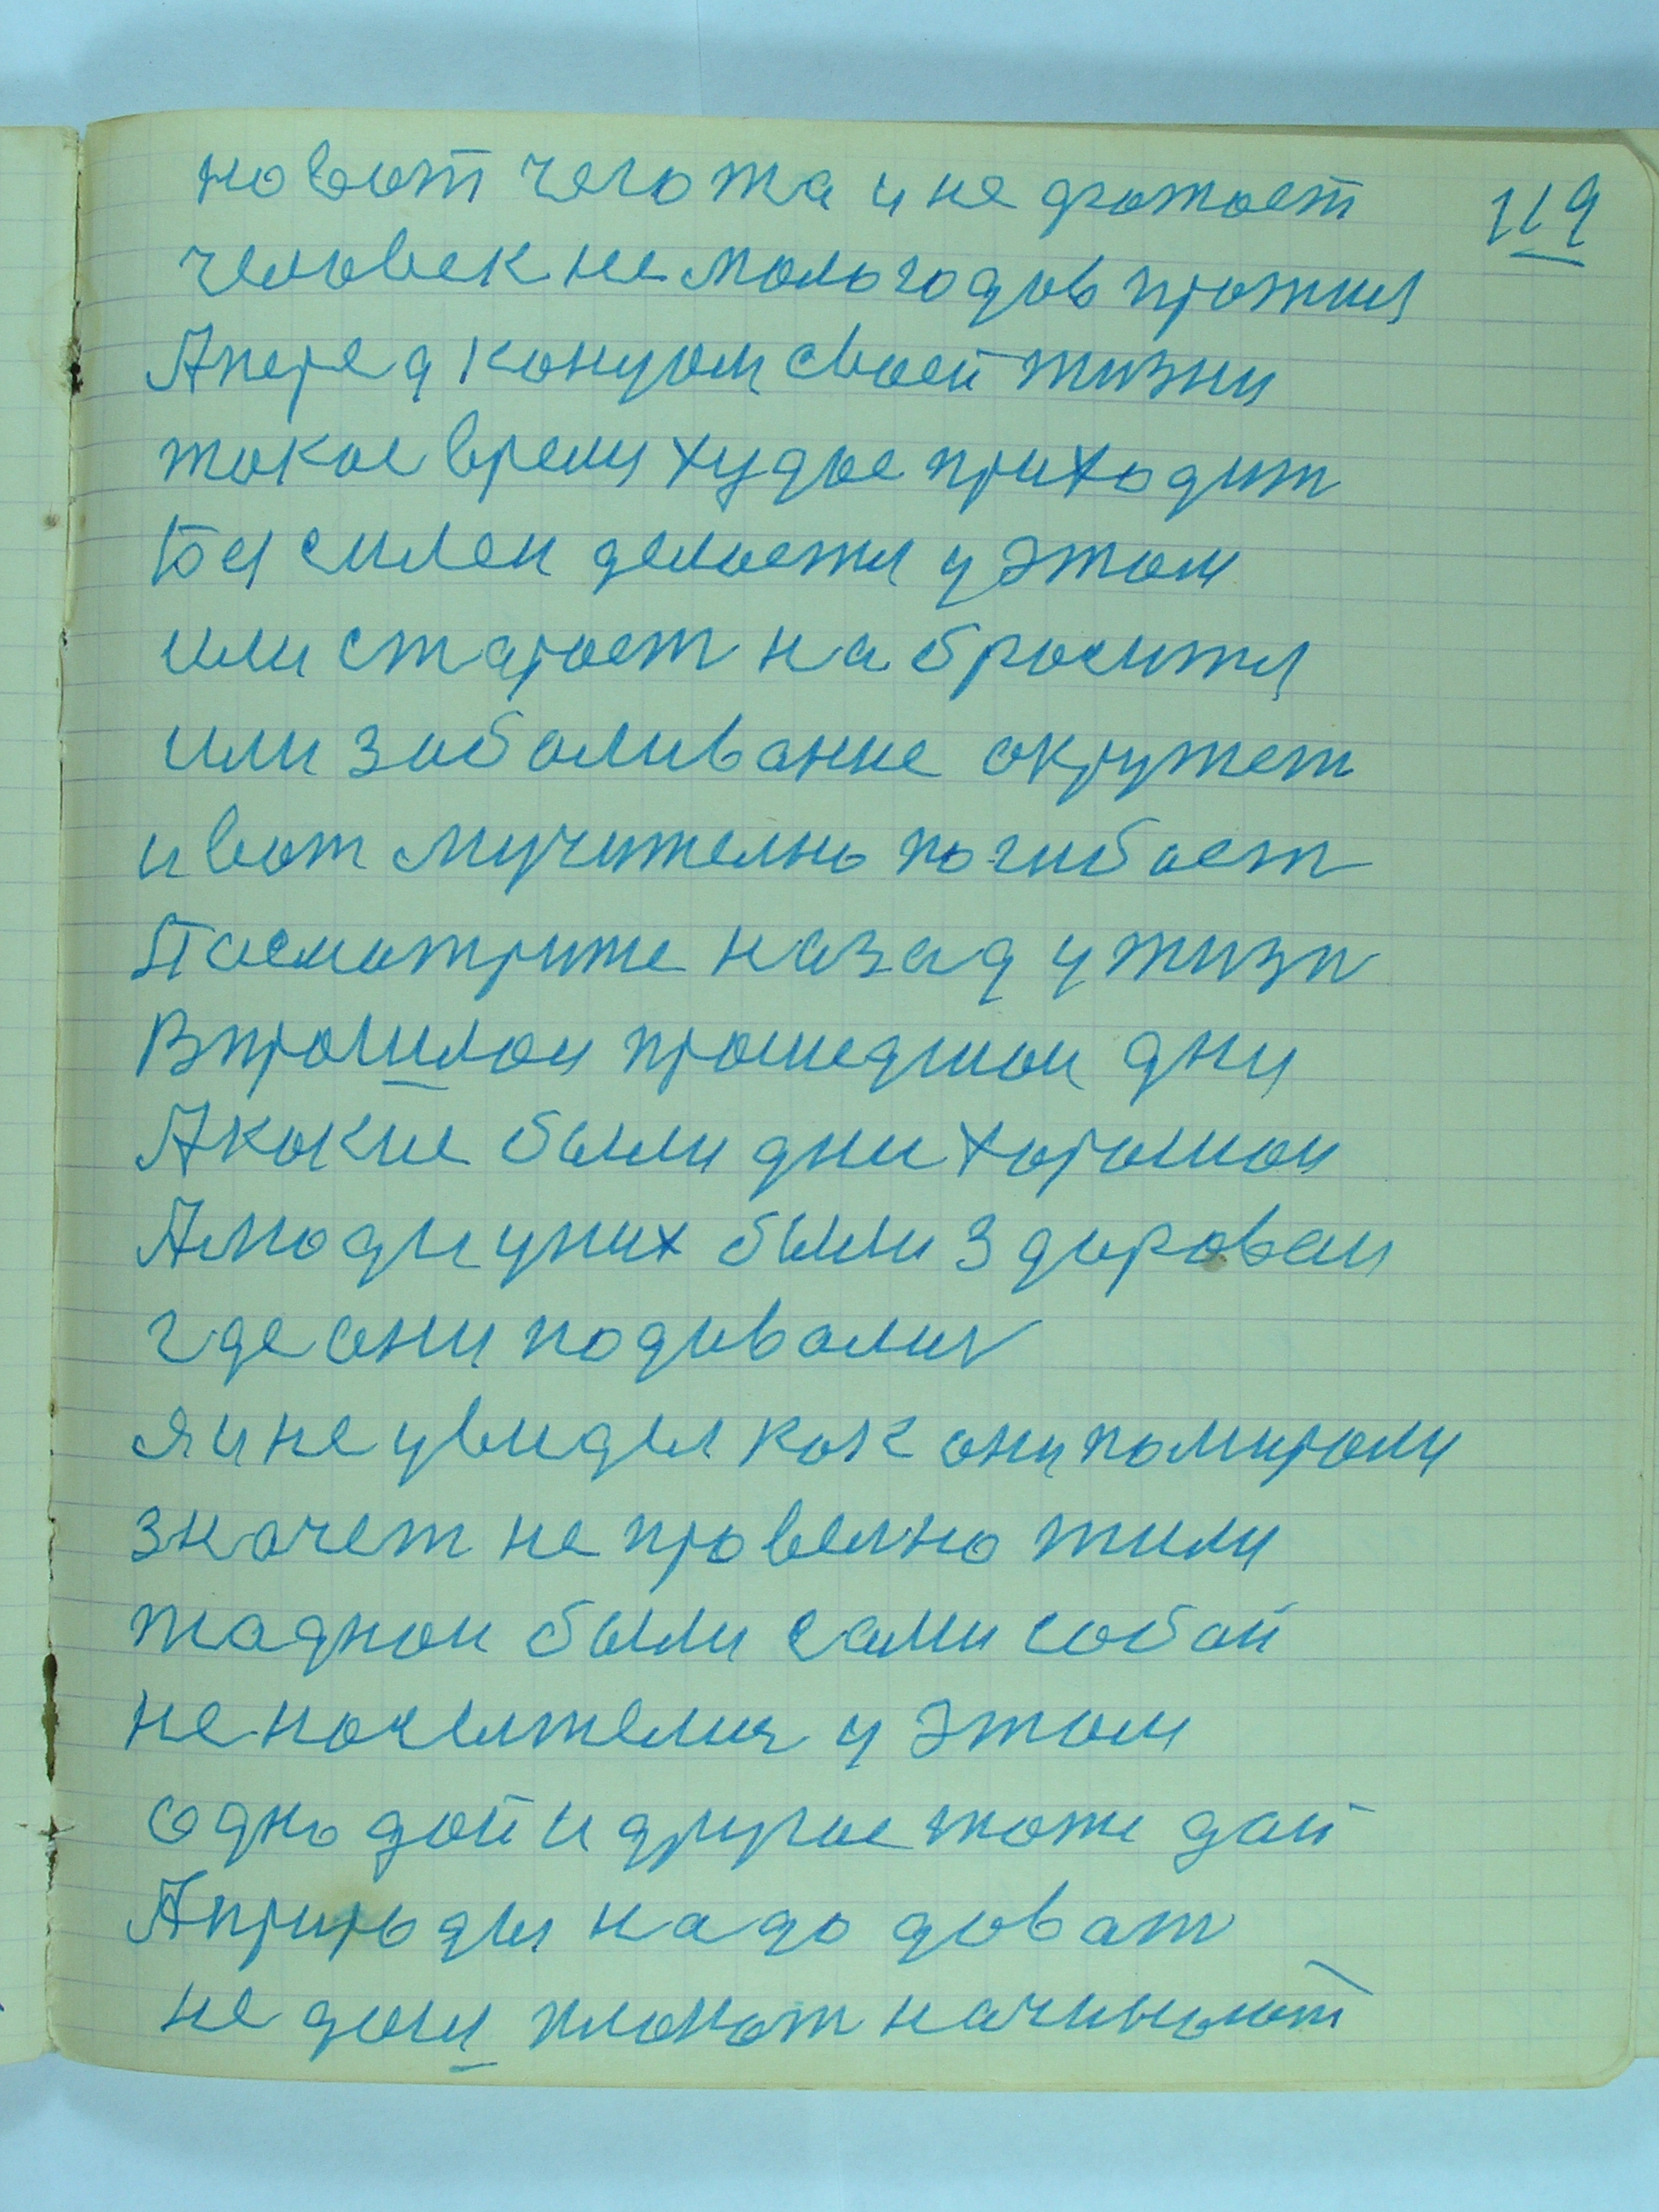 119
но вот чего жа и не дхожает
человек не мало годов прожил
А перед концом своей жизни
такое время худое приходит
Бессилен делается у этом
или стараст набросится
или заболивание окружет
и вот мучително погибает
Пасматрите назад у жизн
В прошлои прошедшои дни
А какие были дни хорошои
А люди у них были здороваи
где они подивались
я и не увидел как они помирали
значет не правелно жили
жаднои были сами собой
не почелжелия у этом
одно дай и другое тоже дай
А природы надо дават
не даш плакат начинают